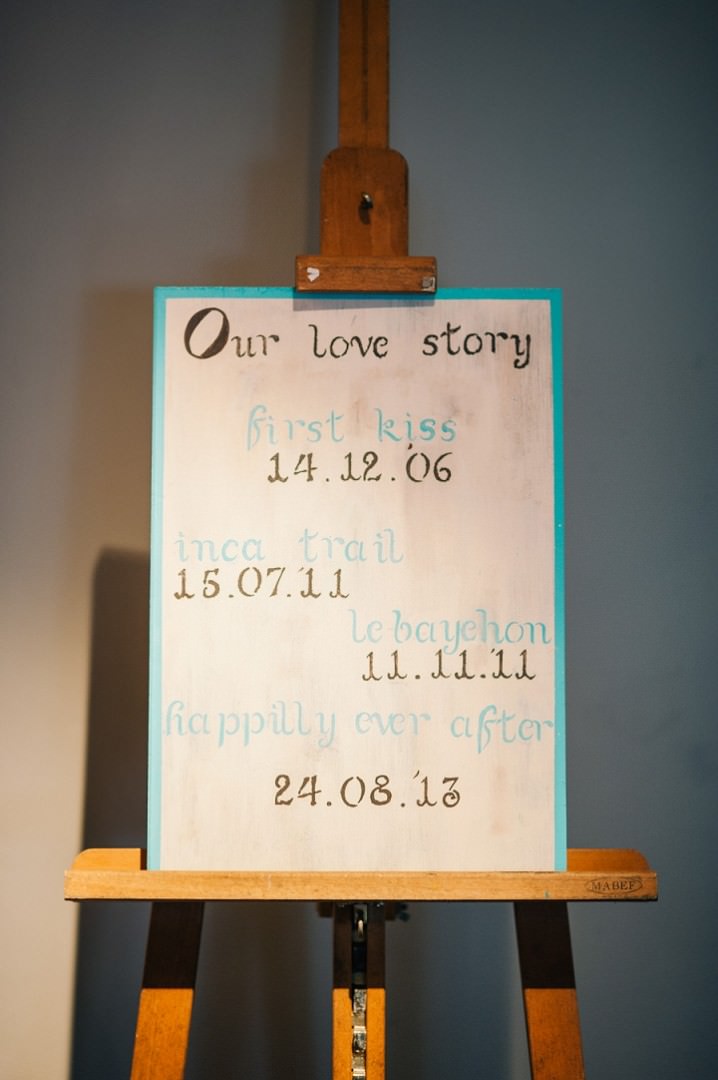 Our love story
first kiss
14.12.'06
inca trail
15.07.'11
le bayehon
11.11.'11
happilly ever after
24.08.'13
MABEF